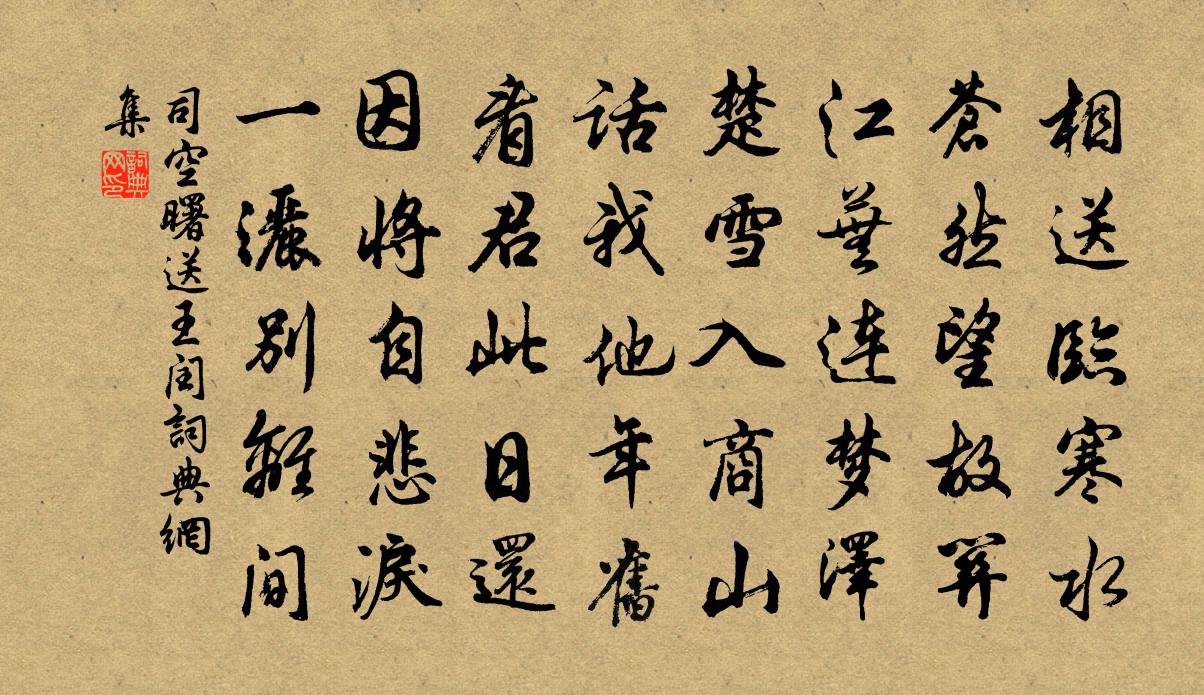 相送臨寒水
蒼然望故關
江蕪連梦澤
楚雪入商山
话我他年舊
看君此日還
因將自悲淚
一灑别離間
司空曙送王閏詞典網
集
詞典网印